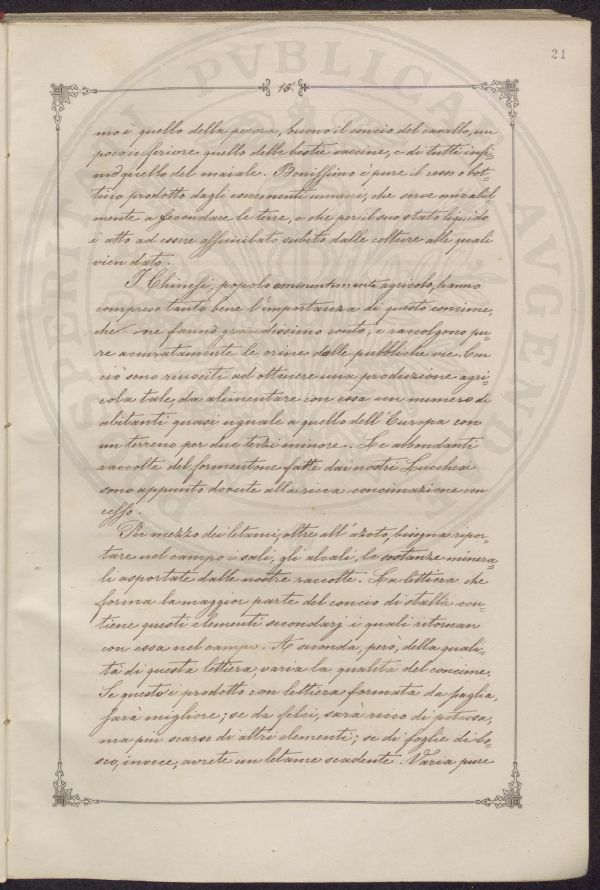 21
15.
mo è quello della pecora, buono il concio del cavallo, un
poco inferiore quello delle bestie vaccine, e di tutti infi=
mo quello del maiale. Bonissimo è pure il cesso o bot=
tino prodotto dagli escrementi umani, che serve mirabil
mente a fecondare le terre, e che per il suo stato liquido
è atto ad essere assimilato subito dalle colture alle quali
vien dato.
I Chinesi, popolo eminentemente agricolo, hanno
compreso tanto bene l'importanza di questo concime,
che ne fanno grandissimo conto, e raccolgono pu=
re accuratamente le orine dalle pubbliche vie. Con
ciò sono riusciti ad ottenere una produzione agri=
cola tale, da alimentare con essa un numero di
abitanti quasi uguale a quello dell'Europa con
un terreno per due terzi minore. Le abbondanti
raccolte del formentone fatte dai nostri Lucchesi
sono appunto dovute alla ricca concimazione con
cesso.
Per mezzo dei letami, oltre all'azoto, bisogna ripor=
tare nel campo i sali, gli alcali, le sostanze minera=
li asportate dalle nostre raccolte. La lettiera che
forma la maggior parte del concio di stalla con=
tiene questi elementi secondarj i quali ritornan
con essa nel campo. A seconda, però, della quali=
tà di questa lettiera, varia la qualità del concime.
Se questo è prodotto con lettiera formata da paglia,
sarà migliore; se da felci, sarà ricco di potassa,
ma più scarso di altri elementi; se di foglie di bo=
sco, invece, avrete un letame scadente. Varia pure